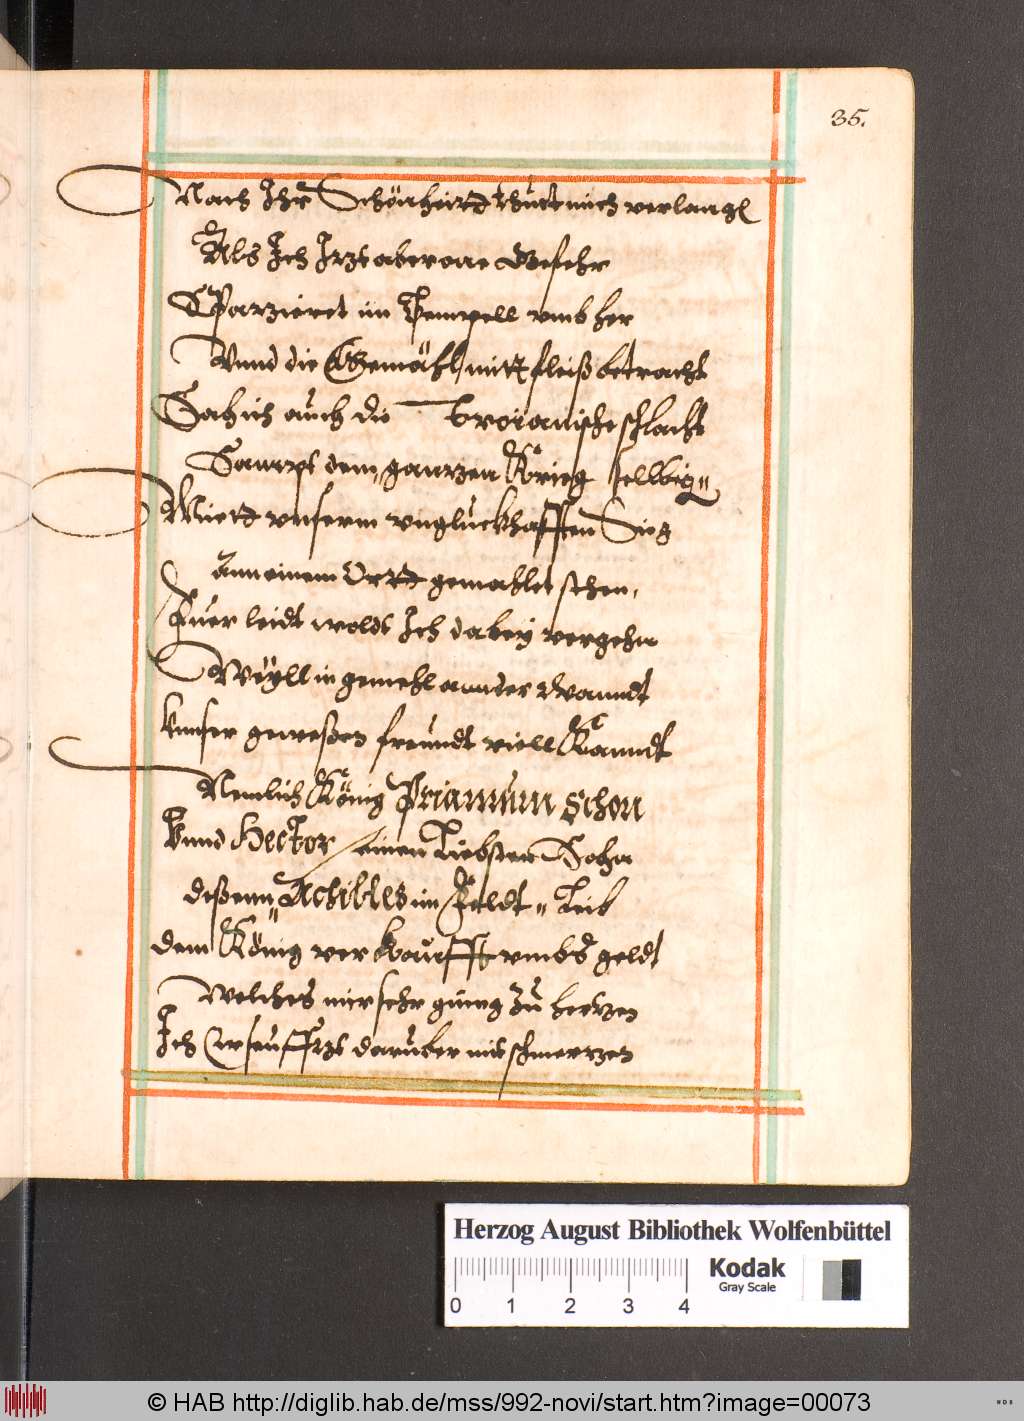 35.
Nach Ihr Schönheitt thutt mich verlangt
Als Ich Jtzt aber one Gefehr
Sparzieret im Tempell vmbher
Vnnd die Gemähl, mitt fleiß betracht
Sah ich auch die Troianische schlacht
Sampt dem, gantzen Krieg selbig„
Mitt vnserm vngluckhafften Sieg
Ann einem Ortt gemahlet schen,
Fuer leidt wolds Ich dabey vergehn
Weyll in gemehl ann der Wanndt
Vnnser geweßen freundt viell Kanndt
Nemlich König Priamum Schon
Vnnd Hector einen Liebsten Sohn
deßenn„ Achilles im Feldt„ Leib
dem König verkaufft vmbs geldt
Welches mir sehr gieng Zu hertzen
Ich Erseufftzt daruber mit schmertzen
Herzog August Bibliothek Wolfenbüttel
Kodak
Gray Scale
0 1 2 3 4
© HAB http://diglib.hab.de/mss/992-novi/start.htm?image=00073